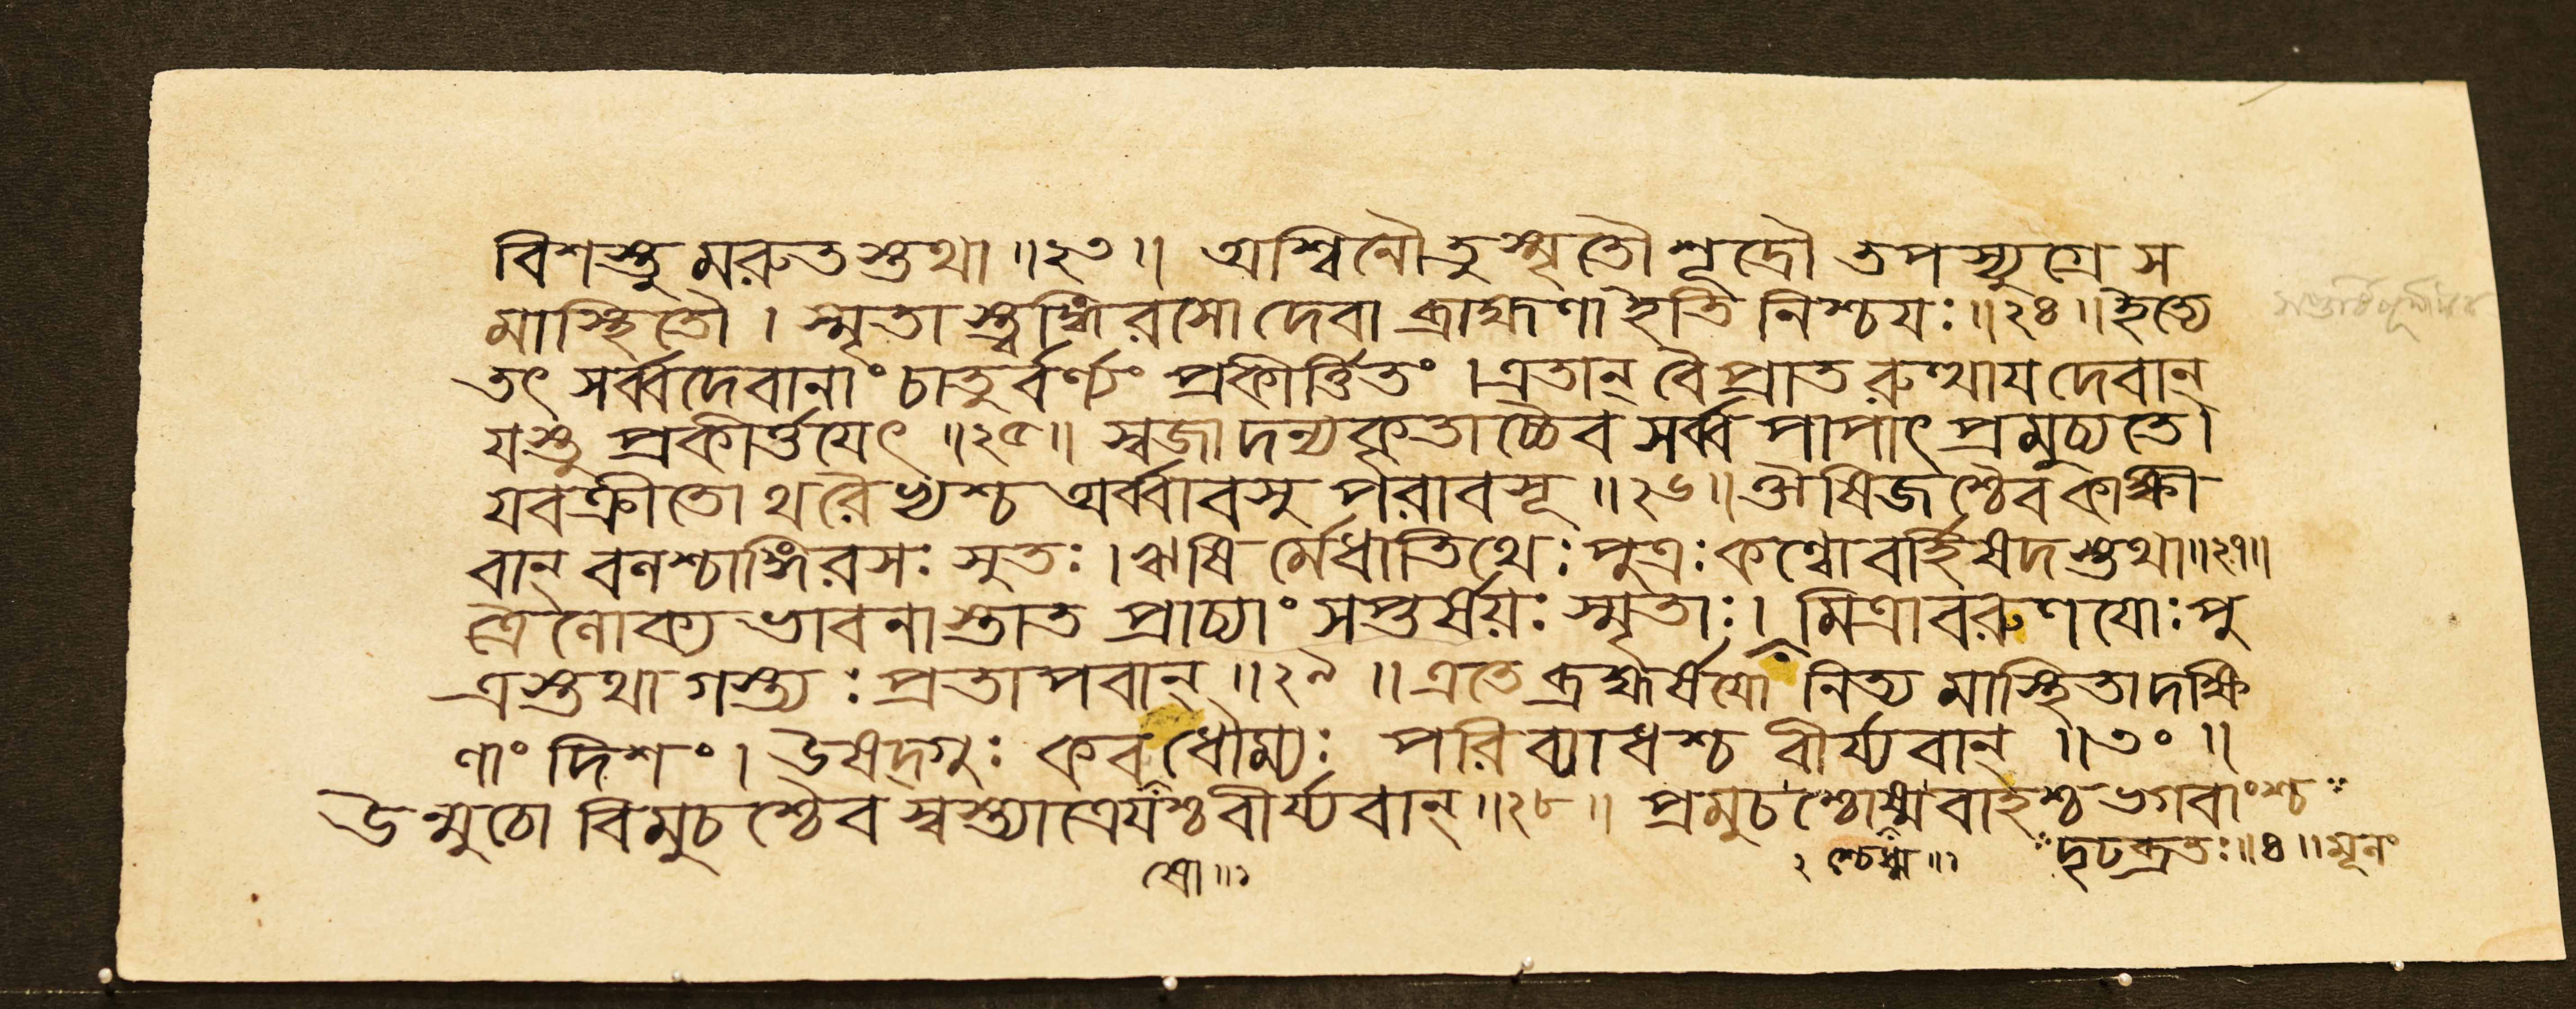 বিশস্তু মরুতস্তথা ॥২৩॥ অশ্বিনৌ তু স্মৃতৌ শূদ্রৌ তপস্যুগ্রে স
মাস্থিতৌ । স্মৃতাস্ত্বঙ্গিরসো দেবা ব্রাহ্মণা ইতি নিশ্চয়ঃ ॥২৪॥ ইত্যে
তৎ সর্ব্বদেবানাং চাতুর্বর্ণ্যং প্রকীর্ত্তিতং । এতান্ বৈ প্রাতরুত্থায দেবান্
যস্তু প্রকীর্ত্তযেৎ ॥২৫॥ স্বজাদন্যকৃতাচ্চৈব সর্ব্বপাপাৎ প্রমুচ্যতে।
যবক্রীতোথ রৈভ্যশ্চ অর্ব্বাবসু পরাবসূ ॥২৬॥ ঔষিজশ্চৈব কাক্ষী
বান্ বলশ্চাঙ্গিরসঃ সুতঃ । ঋষি র্মেধাতিথেঃ পুত্রঃ কণ্বো বর্হিষদস্তথা ॥২৭॥
ত্রৈলোক্য ভাবনাস্তাত প্রাচ্যাং সপ্তর্ষয়ঃ স্মৃতাঃ । মিত্রাবরুণযোঃ পু
ত্রস্তথাগস্ত্যঃ প্রতাপবান্ ॥২৯॥ এতে ব্রহ্মর্ষযো নিত্য মাস্থিতা দক্ষি
ণাং দিশং । উষদ্গুঃ কবধৌম্যঃ পরিব্যাধশ্চ বীর্য্যবান্ ॥৩০॥
উন্মুচো বিমুচশ্চৈব স্বস্ত্যাত্রেযশ্চ বীর্য্যবান্ ॥২৮॥ প্রমুচশ্চোধ্মবাহশ্চ ভগবাংশ্চ
দৃঢব্রতঃ ॥৪॥ মূলং